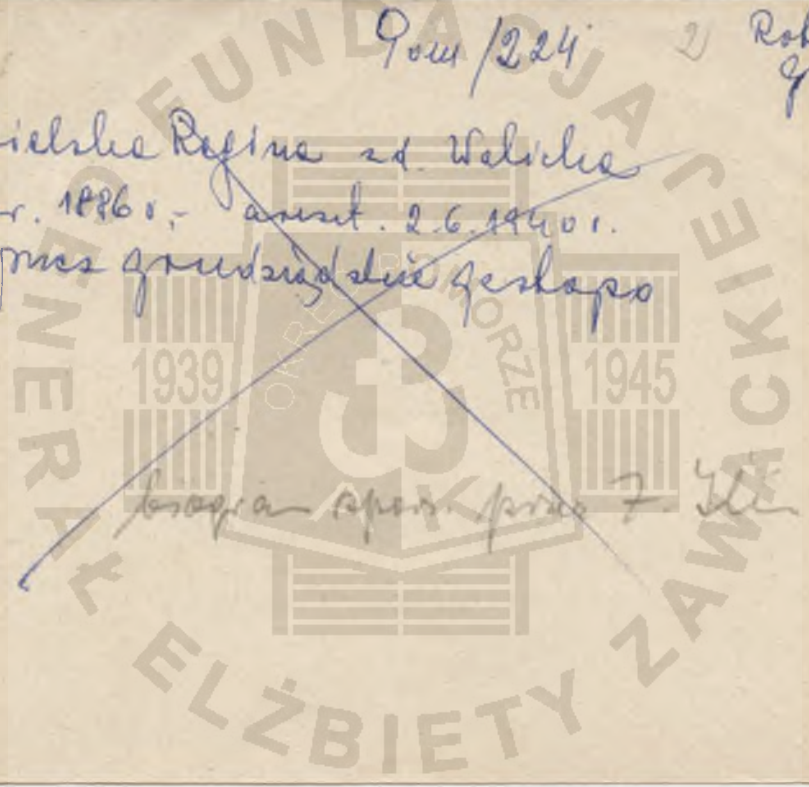 Pom/224 2)
ielska Regina zd. Walicka
r. 1886 r. - areszt. 2.6.1940 r.
przez grudziądzkie gestapo
biogram opow. przez
FUNDACJA GENERAŁ ELŻBIETY ZAWACKIEJ
OKRĘG POMORZE
1939 1945
AK